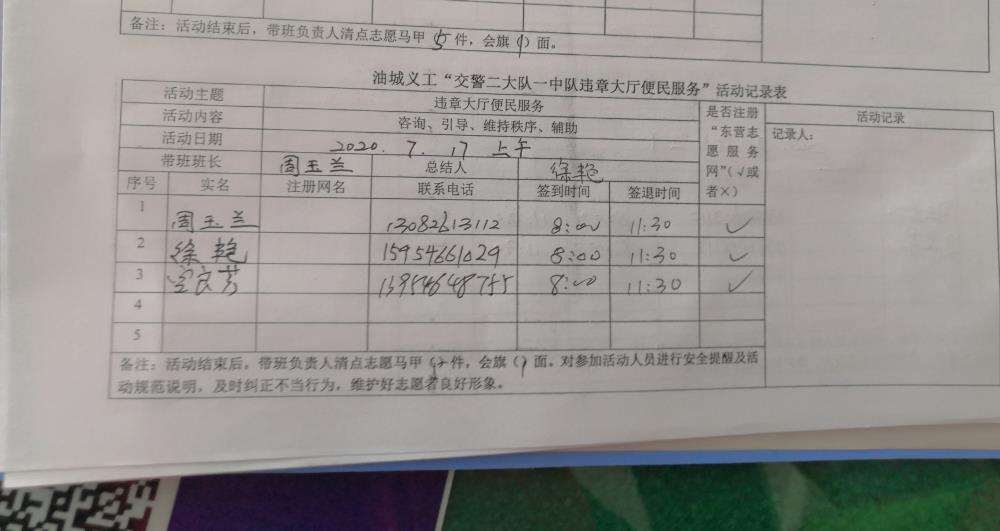 备注：活动结束后，带班负责人清点志愿马甲（5件，会旗（1）面。
油城义工“交警二大队一中队违章大厅便民服务”活动记录表
活动主题 违章大厅便民服务 是否注册“东营志愿服务网”（√或者×） 活动记录
活动内容 咨询、引导、维持秩序、辅助 记录人：
活动日期 2020. 7. 17 上午
带班班长 周玉兰 总结人 徐艳
序号 实名 注册网名 联系电话 签到时间 签退时间
1 周玉兰 13082613112 8:00 11:30 ✓
2 徐艳 15954661029 8:00 11:30 ✓
3 13954648755 8:00 11:30 ✓
4
5
备注：活动结束后，带班负责人清点志愿马甲（件，会旗（1）面。对参加活动人员进行安全提醒及活
动规范说明，及时纠正不当行为，维护好志愿者良好形象。